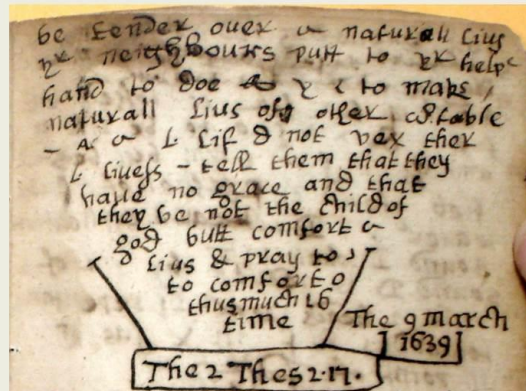 be tender over a naturall lius
yr neighbours putt to yr helpe
hand to doe y t to make
naturall lius off other
a L lif d not vex ther
L liuefs - tell them that they
haue no grace and that
they be not the child of
god butt comfort a
lius & pray to
to comfort o
thus much 16
time
The 9 march
1639
The 2 Thes 2.17.